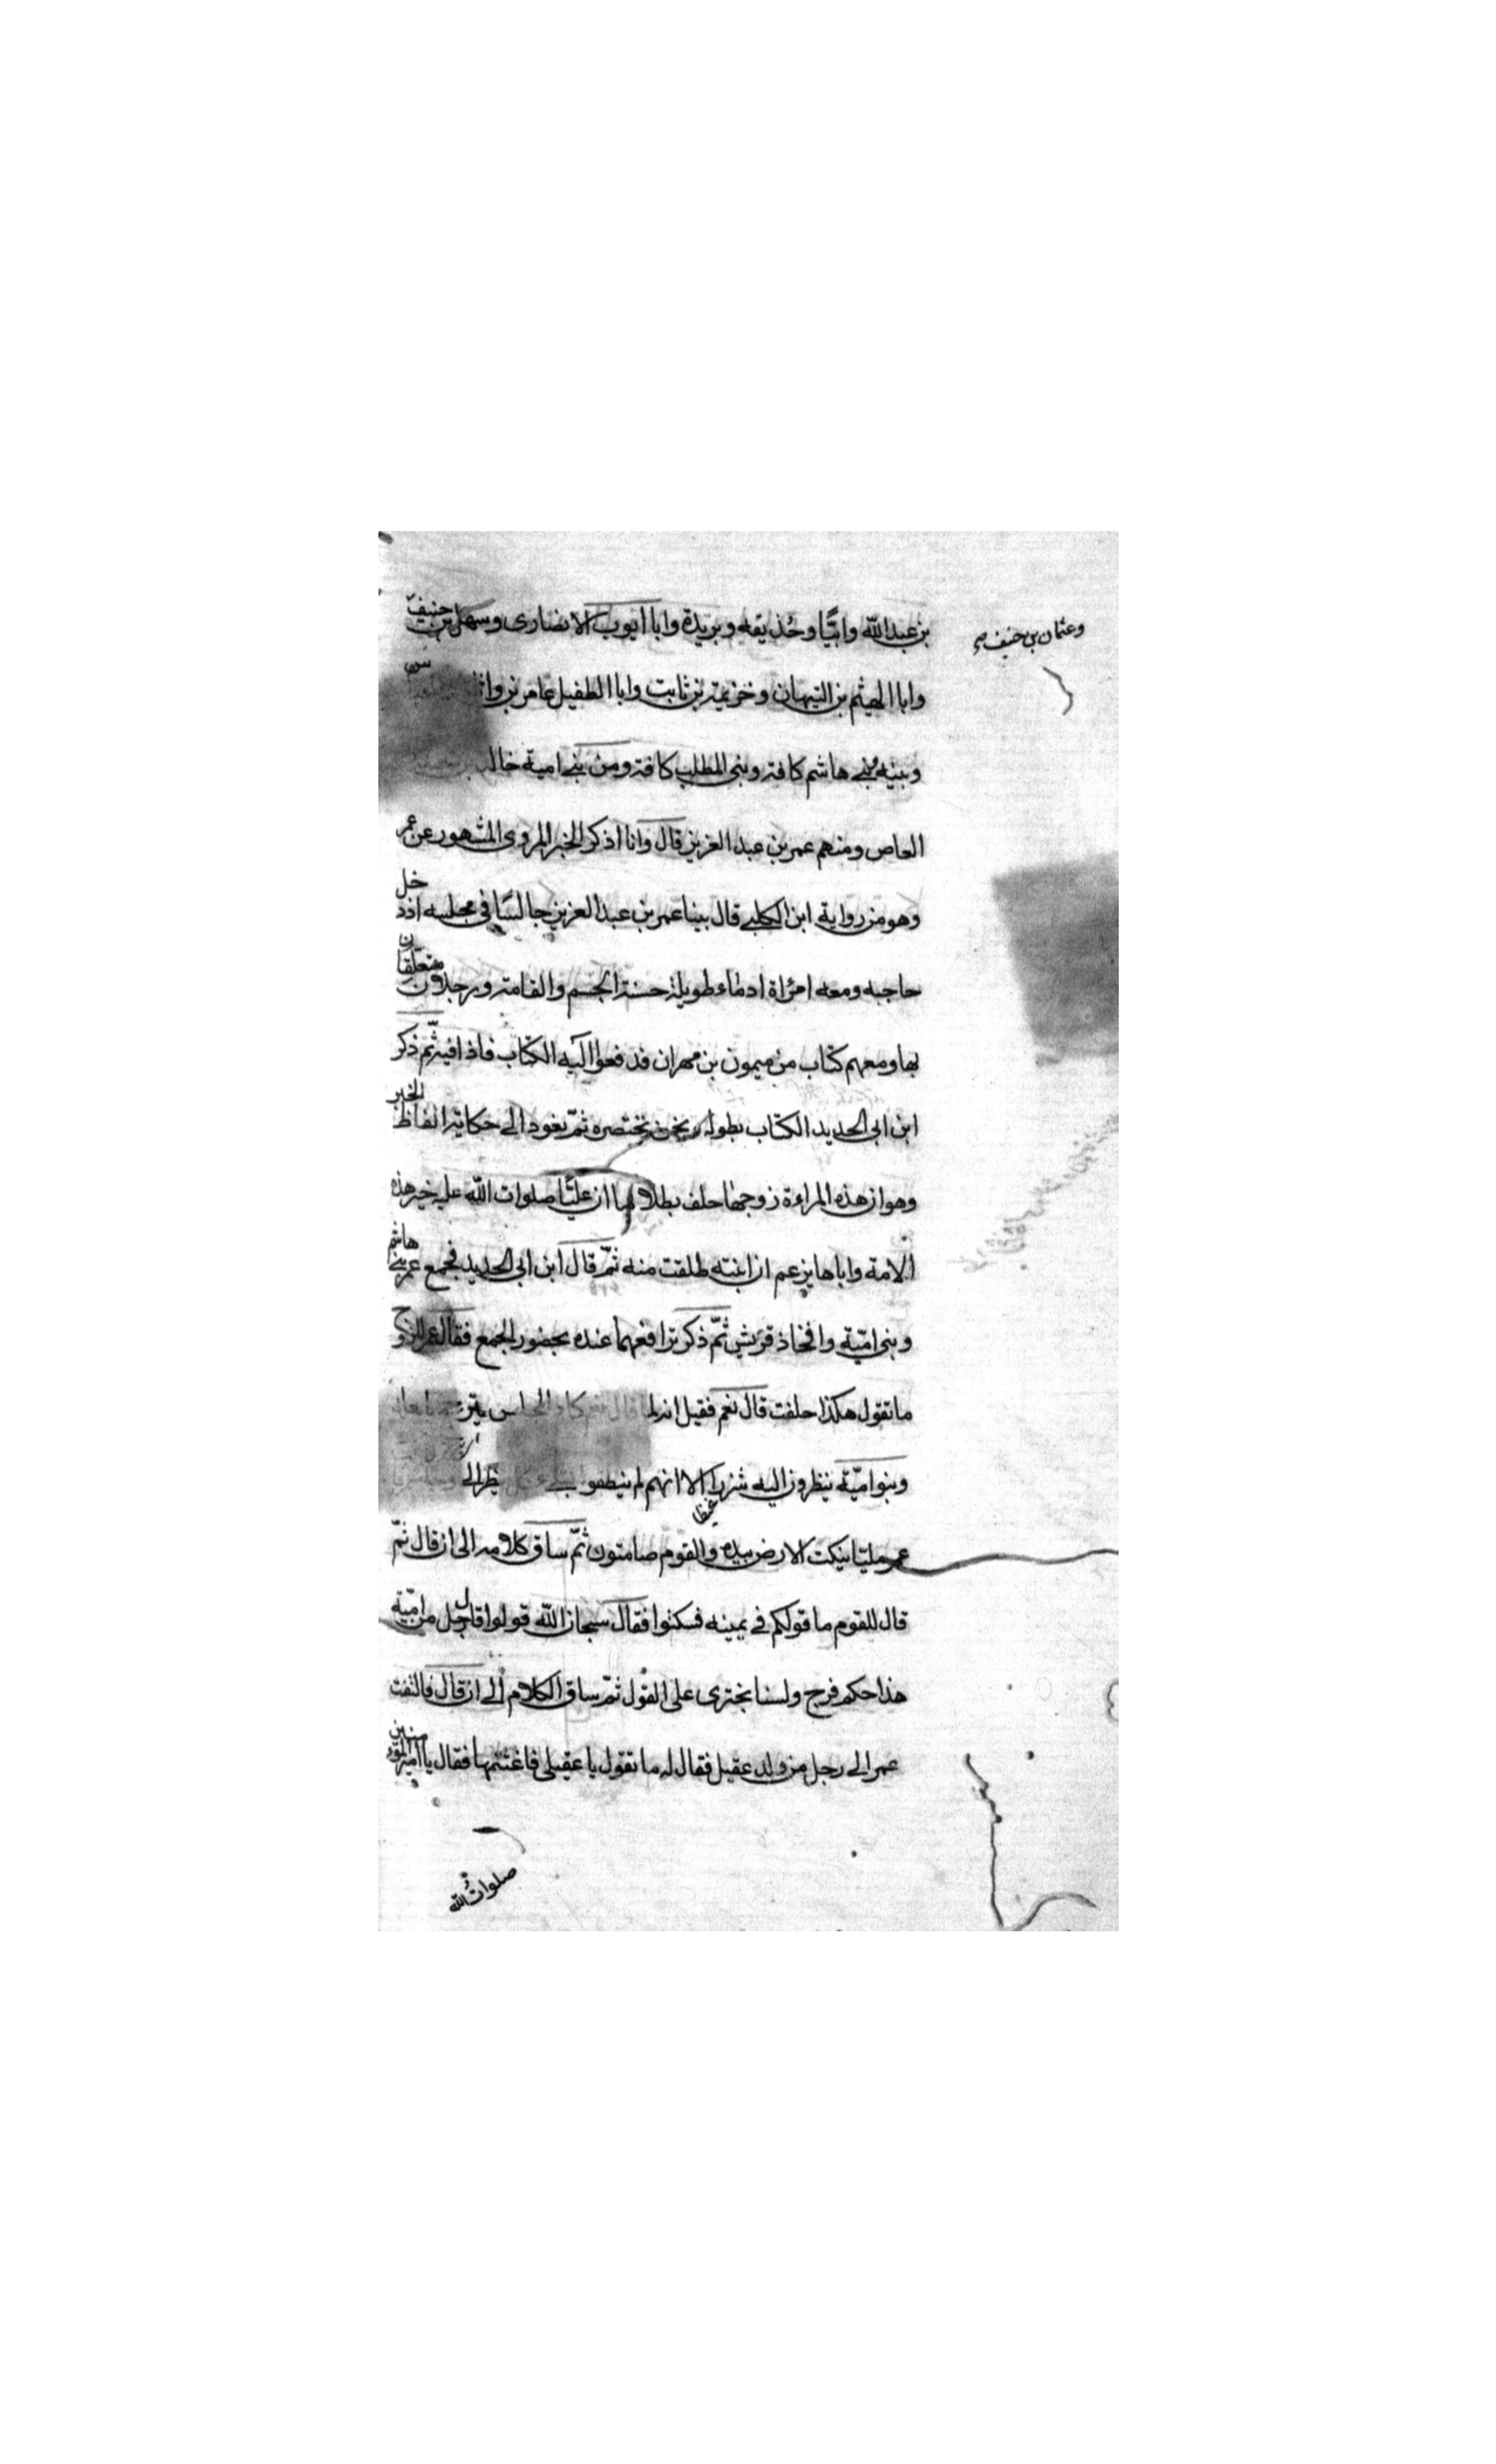 بن عبد الله وابيّا وحذيفه وبريدة وابا ايوب الانصارى وسهل بن حنيف
وعثمان بن حنيف صح
وابا الهيثم بن التيهان وخزيمة بن ثابت وابا الطفيل عامر بن واثلة
وبنيه وبني هاشم كافة وبنى المطلب كافة ومن بنى امية خالد بن
العاص ومنهم عمر بن عبد العزيز قال وانا اذكر الخبر المروى المشهور عن عمر
وهو من رواية ابن الكلبے قال بينا عمر بن عبد العزيز جالسًا فى مجلسه اذ دخل
حاجبه ومعه امرأة ادماء طويلة حسنة الجسم والقامة ورجلان متعلقان
بها ومعهم كتاب من ميمون بن مهران فدفعوا اليه الكتاب فاذا فيه ثمّ ذكر
ابن ابى الحديد الكتاب بطوله ونحن نختصره ثمّ نعود الى حكاية الفاظ الخبر
وهو ان هذه المراءة زوجها حلف بطلاقها ان عليًّا صلوات الله عليه خير هذه
الامة واباها يزعم ان ابنته طلقت منه ثمّ قال ابن ابى الحديد فجمع عمر بنے هاشم
وبنى اميّة وافخاذ قريش ثمّ ذكر ترافعهما عنده بحضور الجمع فقال عمر للزوج
ما تقول هكذا حلفت قال نعم فقيل انه لما قال نعم كاد المجلس يرتج باهله
وبنو اميّة ينظرون اليه شزرا الا انهم لم ينطقوا بشئ كل ينظر الى
عمر مليّا ينكت الارض بيده والقوم صامتون ثمّ ساق كلامه الى ان قال ثمّ
غيظا
قال للقوم ما قولكم فے يمينه فسكتوا فقال سبحان الله قولوا قال رجل من اميّة
هذا حكم فرج ولسنا نجترى على القول ثمّ ساق الكلام الى ان قال فالتفت
عمر الى رجل من ولد عقيل فقال له ما تقول يا عقيلى فاغتنمها فقال يا امير المؤمنين
صلوات الله